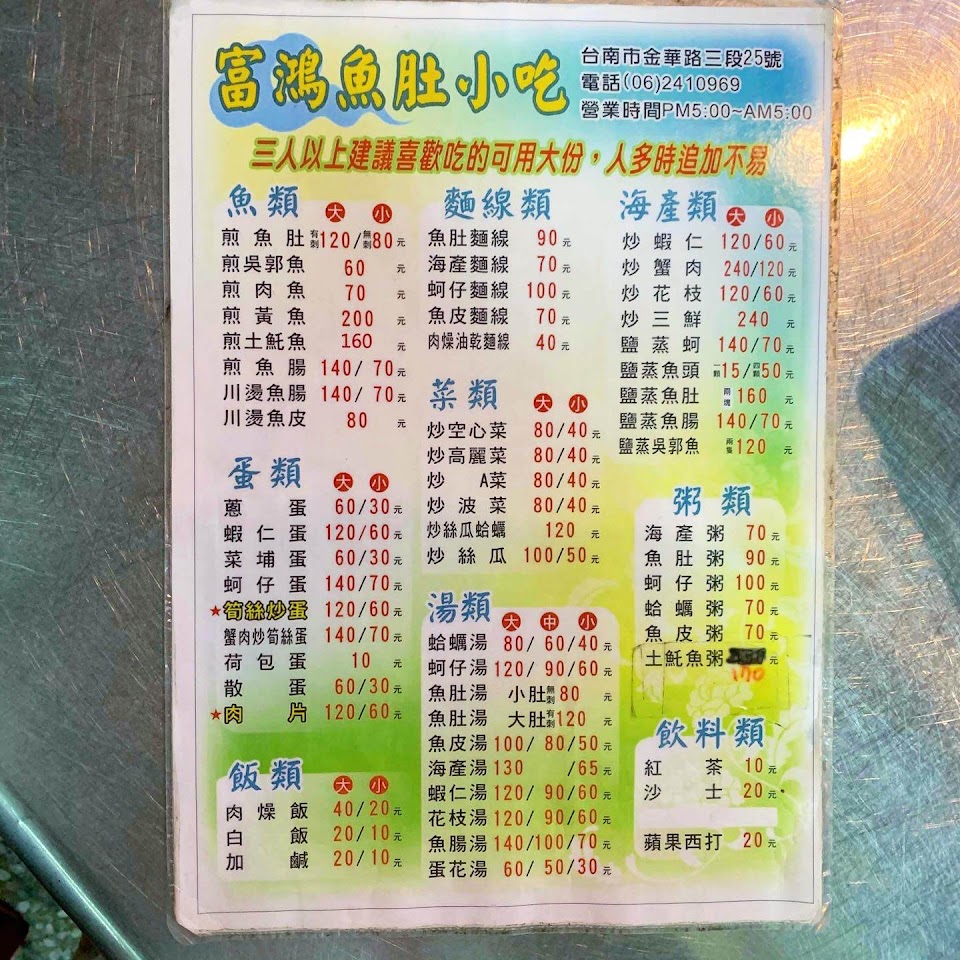 富鴻魚肚小吃
台南市金華路三段25號
電話(06)2410969
營業時間PM5:00~AM5:00
三人以上建議喜歡吃的可用大份，人多時追加不易
魚類 大 小
煎魚肚 有刺120/無刺80元
煎吳郭魚 60 元
煎肉魚 70 元
煎黃魚 200 元
煎土魠魚 160 元
煎魚腸 140/70元
川燙魚腸 140/70元
川燙魚皮 80 元
蛋類 大 小
蔥蛋 60/30元
蝦仁蛋 120/60元
菜埔蛋 60/30元
蚵仔蛋 140/70元
★筍絲炒蛋 120/60元
蟹肉炒筍絲蛋 140/70元
荷包蛋 10 元
散蛋 60/30元
★肉片 120/60元
飯類 大 小
肉燥飯 40/20元
白飯 20/10元
加鹹 20/10元
麵線類
魚肚麵線 90元
海產麵線 70元
蚵仔麵線 100元
魚皮麵線 70元
肉燥油乾麵線 40元
菜類 大 小
炒空心菜 80/40元
炒高麗菜 80/40元
炒A菜 80/40元
炒波菜 80/40元
炒絲瓜蛤蠣 120 元
炒絲瓜 100/50元
湯類 大 中 小
蛤蠣湯 80/60/40元
蚵仔湯 120/90/60元
魚肚湯 小肚無刺80 元
魚肚湯 大肚有刺120 元
魚皮湯 100/80/50元
海產湯 130 /65元
蝦仁湯 120/90/60元
花枝湯 120/90/60元
魚腸湯 140/100/70元
蛋花湯 60/50/30元
海產類 大 小
炒蝦仁 120/60元
炒蟹肉 240/120元
炒花枝 120/60元
炒三鮮 240 元
鹽蒸蚵 140/70元
鹽蒸魚頭 一顆15/四顆50元
鹽蒸魚肚 兩塊160 元
鹽蒸魚腸 140/70元
鹽蒸吳郭魚 兩隻120 元
粥類
海產粥 70元
魚肚粥 90元
蚵仔粥 100元
蛤蠣粥 70元
魚皮粥 70元
土魠魚粥 170
飲料類
紅茶 10元
沙士 20元
蘋果西打 20元